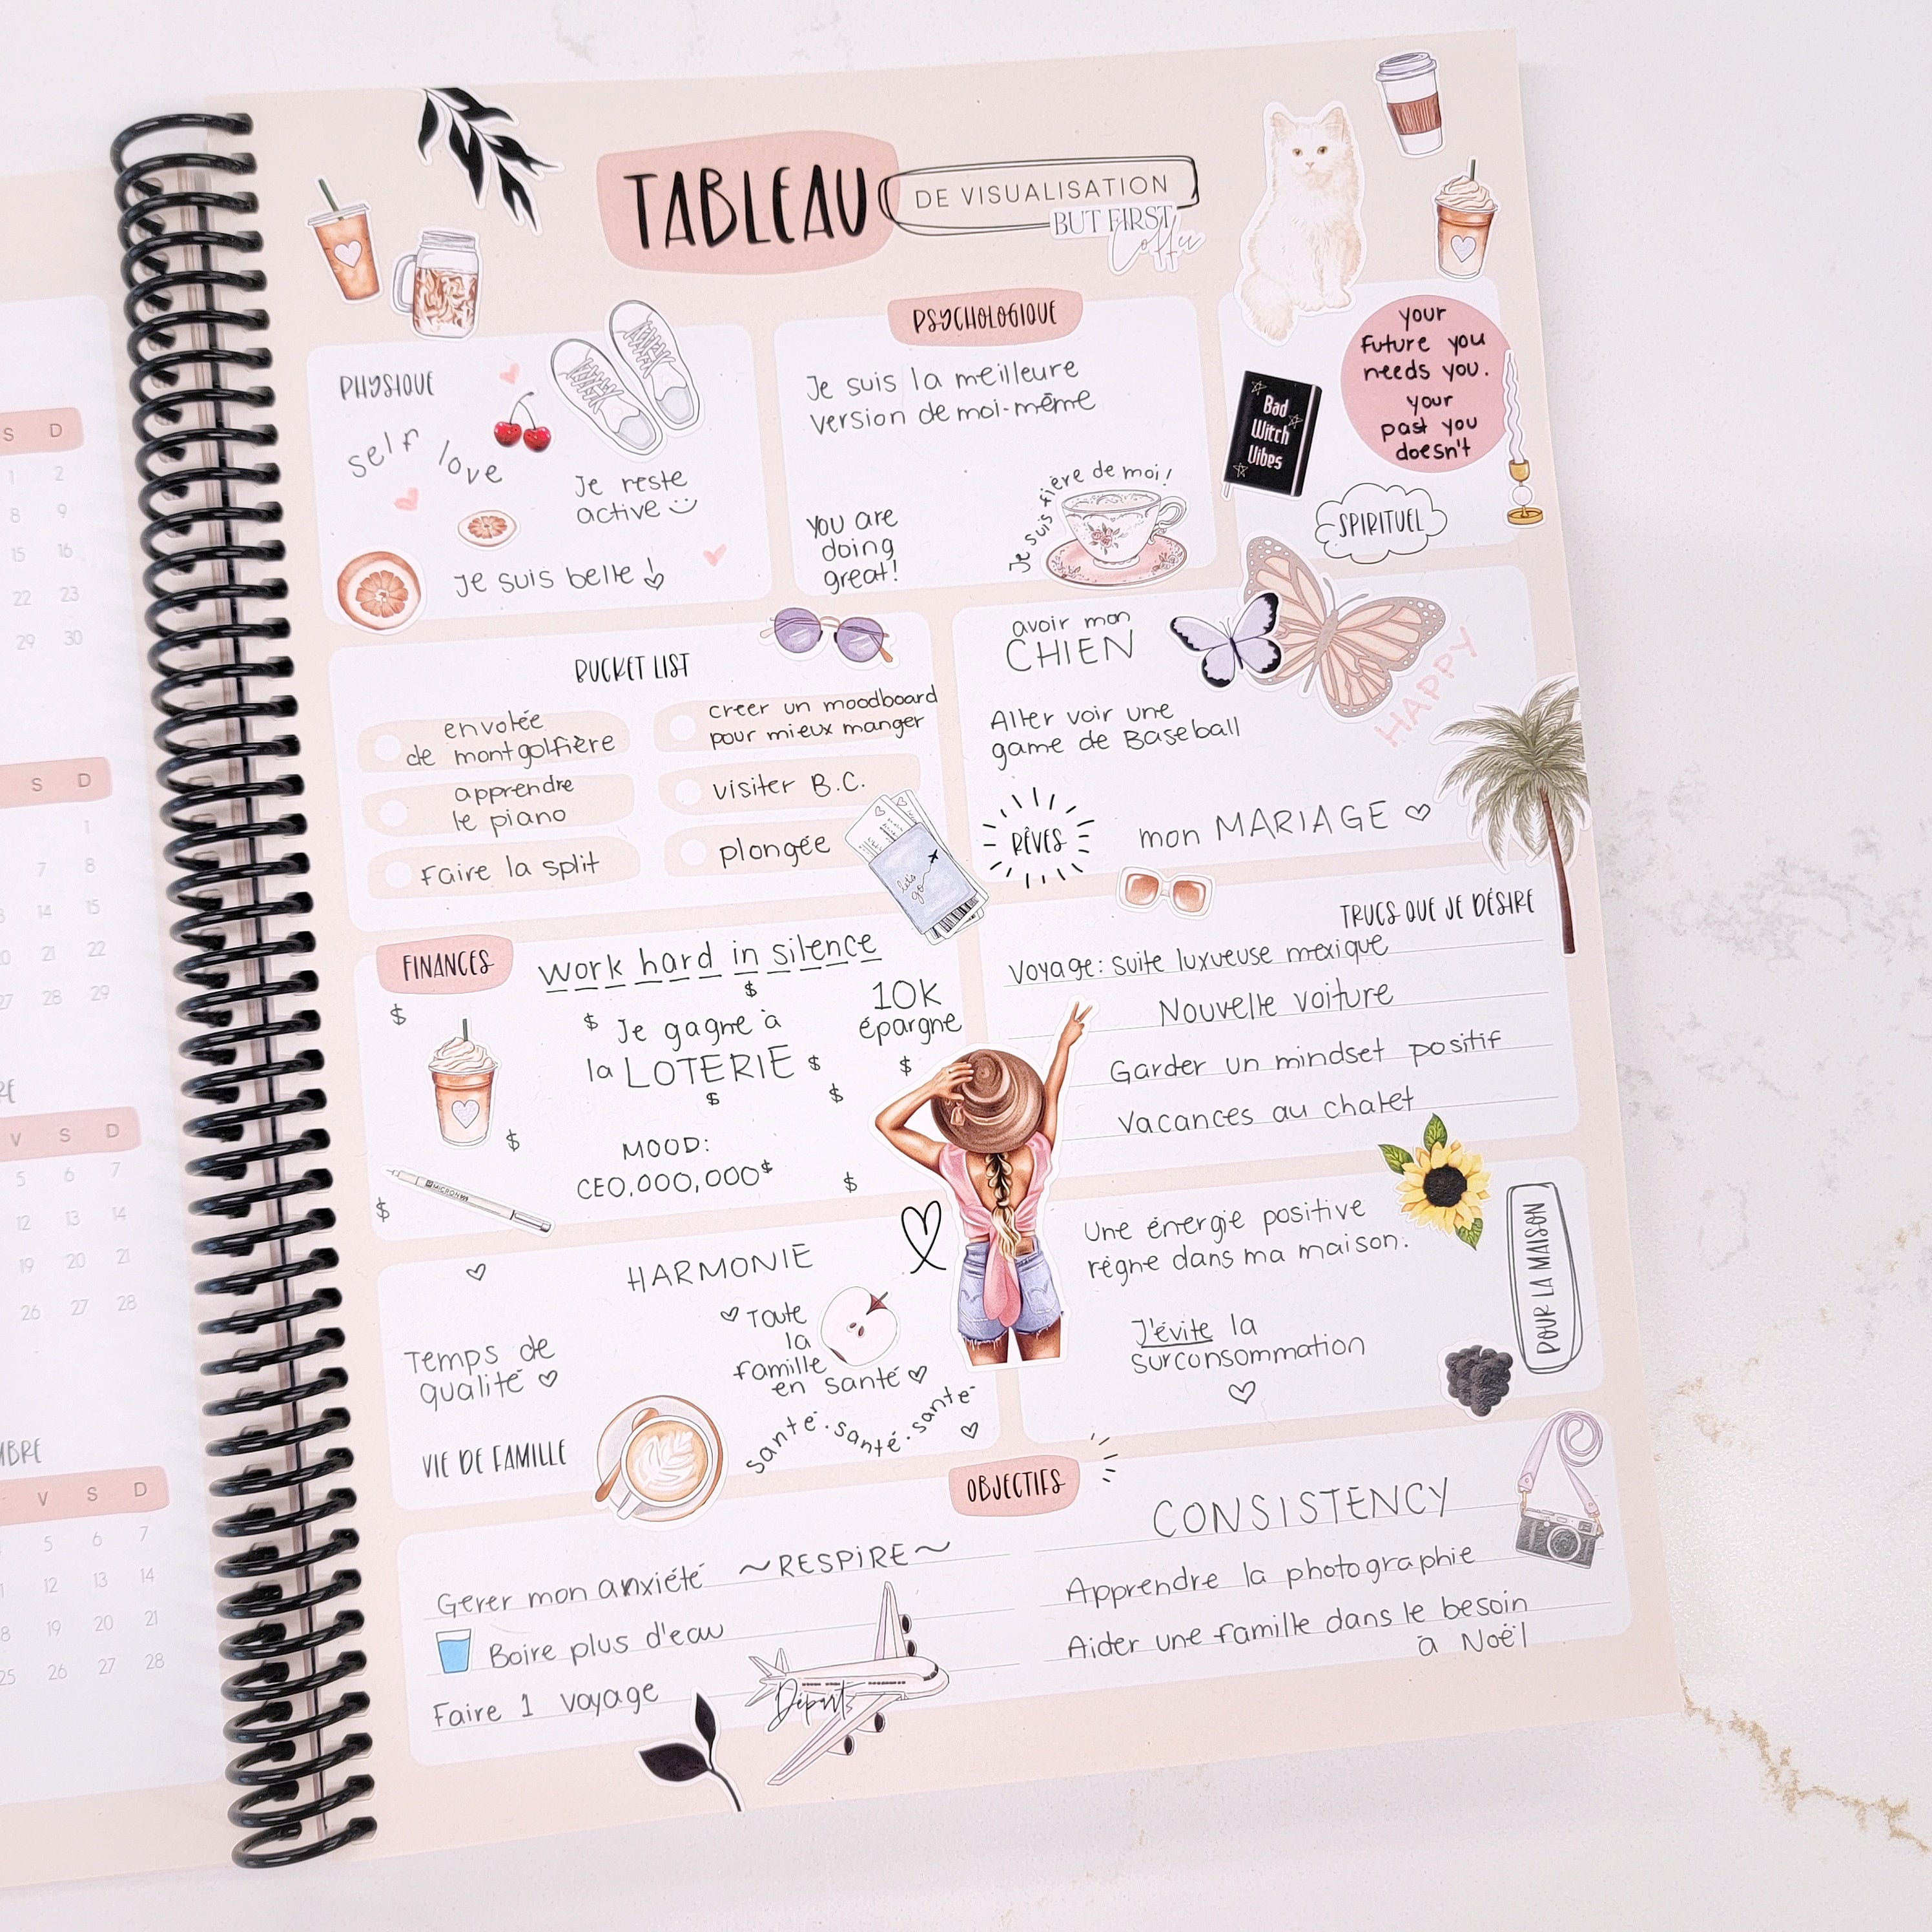 TABLEAU
DE VISUALISATION
BUT FIRST
Coffee
PHYSIQUE
self love
Je reste
active
Je suis belle!
PSYCHOLOGIQUE
Je suis la meilleure
version de moi-même
You are
doing
great!
Je suis fière de moi!
your
future you
needs you.
your
past you
doesn't
Bad
Witch
Vibes
SPIRITUEL
BUCKET LIST
envolée
de montgolfière
apprendre
le piano
Faire la split
créer un moodboard
pour mieux manger
visiter B.C.
plongée
let's
go
avoir mon
CHIEN
HAPPY
Aller voir une
game de Baseball
RÊVES
mon MARIAGE
FINANCES
work hard in silence
$
$
$ Je gagne à
la LOTERIE $
$
$
10K
épargne
$
$
MOOD:
CEO,000,000$
$
MICRON
$
TRUCS QUE JE DÉSIRE
Voyage: suite luxueuse mexique
Nouvelle voiture
Garder un mindset positif
Vacances au chalet
HARMONIE
Temps de
qualité
Toute
la
famille
en santé
santé.santé.santé
VIE DE FAMILLE
Une énergie positive
règne dans ma maison.
J'évite la
surconsommation
POUR LA MAISON
OBJECTIFS
Gérer mon anxiété ~RESPIRE~
Boire plus d'eau
Faire 1 voyage
Départ
CONSISTENCY
Apprendre la photographie
Aider une famille dans le besoin
à Noël
S D
1 2
8 9
15 16
22 23
29 30
S D
1
7 8
14 15
20 21 22
27 28 29
RE
V S D
5 6 7
12 13 14
19 20 21
26 27 28
MBRE
V S D
5 6 7
12 13 14
19 20 21
25 26 27 28